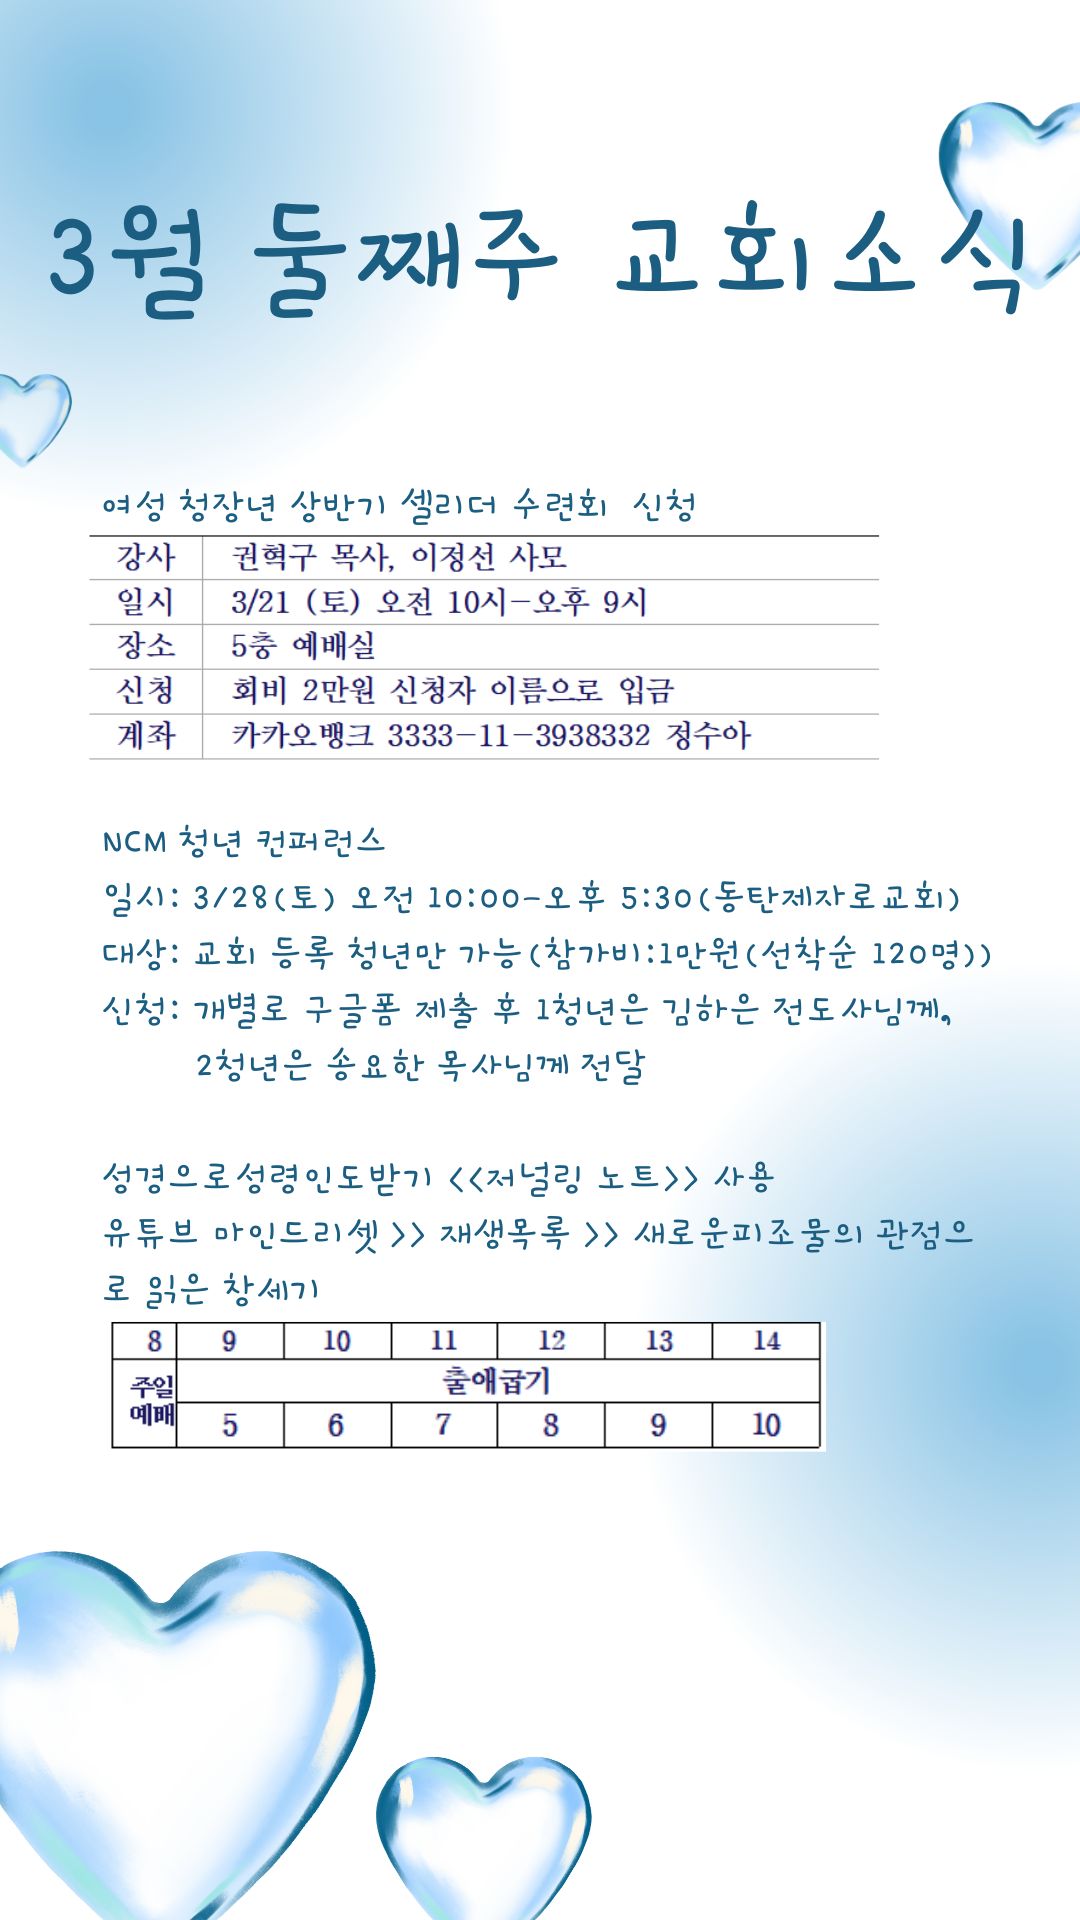 3월 둘째주 교회소식
여성 청장년 상반기 셀리더 수련회 신청
강사 권혁구 목사, 이정선 사모
일시 3/21 (토) 오전 10시-오후 9시
장소 5층 예배실
신청 회비 2만원 신청자 이름으로 입금
계좌 카카오뱅크 3333-11-3938332 정수아
NCM 청년 컨퍼런스
일시: 3/28(토) 오전 10:00-오후 5:30(동탄제자로교회)
대상: 교회 등록 청년만 가능(참가비:1만원(선착순 120명))
신청: 개별로 구글폼 제출 후 1청년은 김하은 전도사님께,
2청년은 송요한 목사님께 전달
성경으로성령인도받기 <<저널링 노트>> 사용
유튜브 마인드리셋 >> 재생목록 >> 새로운피조물의 관점으
로 읽은 창세기
8 9 10 11 12 13 14
주일 출애굽기
예배 5 6 7 8 9 10